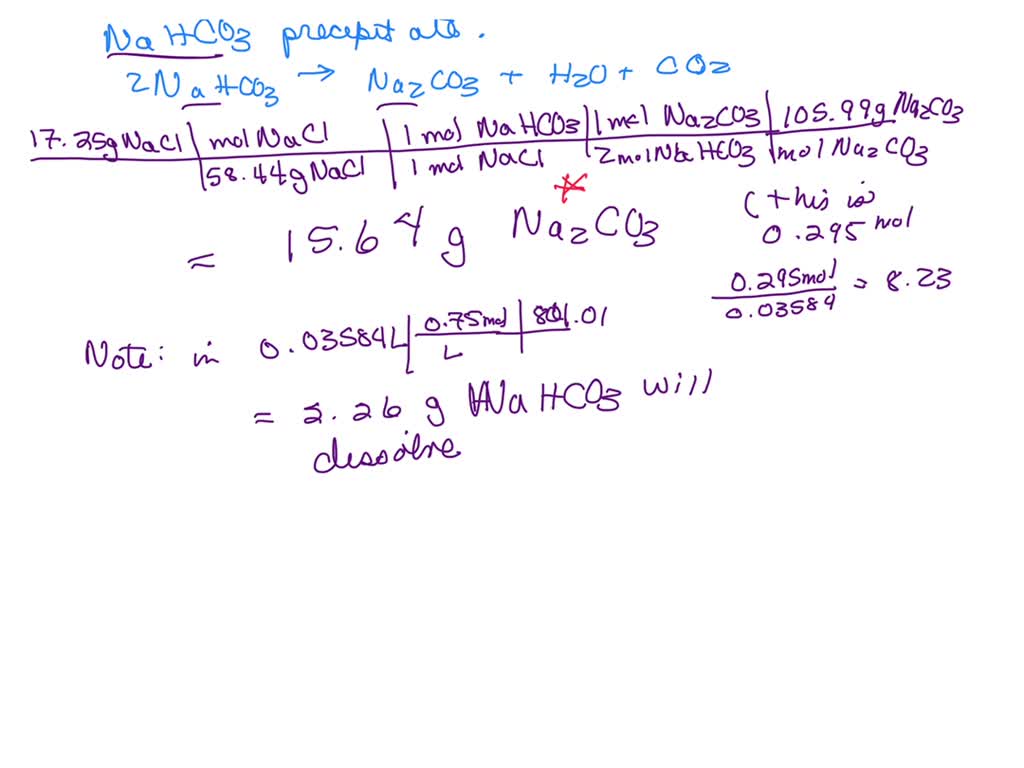 NaHCO3 precepitate.
2NaHCO3 → Na2CO3 + H2O + CO2
17.25g NaCl | mol NaCl | 1 mol NaHCO3 | 1 mol Na2CO3 | 105.99g Na2CO3
58.44g NaCl | 1 mol NaCl | 2 mol NaHCO3 | mol Na2CO3
= 15.64 g Na2CO3
(this is
0.295 mol
0.295 mol
0.03584 = 8.23
Note: in 0.03584L | 0.75 mol | 01.01
L
= 2.26 g NaHCO3 will
dissolve